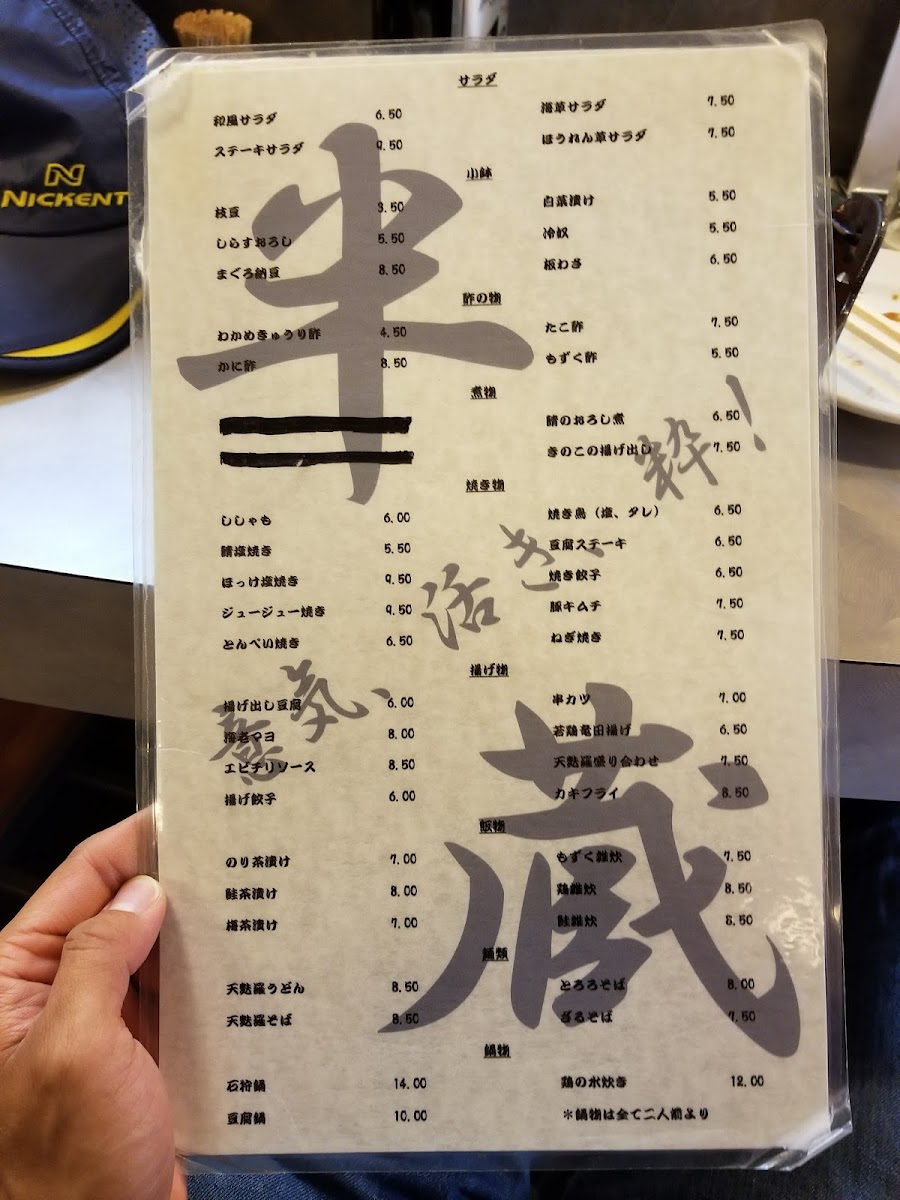 NICKENT
サラダ
和風サラダ 6.50 海草サラダ 7.50
ステーキサラダ 9.50 ほうれん草サラダ 7.50
小鉢
枝豆 3.50 白菜漬け 5.50
しらすおろし 5.50 冷奴 5.50
まぐろ納豆 8.50 板わさ 6.50
酢の物
わかめきゅうり酢 4.50 たこ酢 7.50
かに酢 8.50 もずく酢 5.50
煮物
鯖のおろし煮 6.50
きのこの揚げ出し 7.50
焼き物
ししゃも 6.00 焼き鳥(塩、タレ) 6.50
鯖塩焼き 5.50 豆腐ステーキ 6.50
ほっけ塩焼き 9.50 焼き餃子 6.50
ジュージュー焼き 9.50 豚キムチ 7.50
とんぺい焼き 6.50 ねぎ焼き 7.50
揚げ物
揚げ出し豆腐 6.00 串カツ 7.00
海老マヨ 8.00 若鶏竜田揚げ 6.50
エビチリソース 8.50 天麩羅盛り合わせ 7.50
揚げ餃子 6.00 カキフライ 8.50
飯物
のり茶漬け 7.00 もずく雑炊 7.50
鮭茶漬け 8.00 鶏雑炊 8.50
梅茶漬け 7.00 鮭雑炊 8.50
麺類
天麩羅うどん 8.50 とろろそば 8.00
天麩羅そば 8.50 ざるそば 7.50
鍋物
石狩鍋 14.00 鶏の水炊き 12.00
豆腐鍋 10.00 *鍋物は全て二人前より
半蔵
意気、活き、粋!